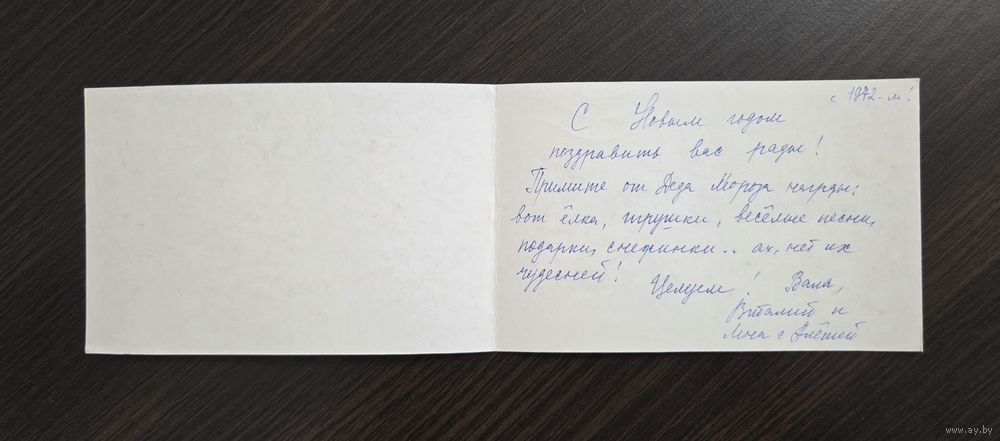 с 1972-м!
С Новым годом
поздравить вас рады!
Примите от Деда Мороза награды:
вот ёлка, игрушки, весёлые песни,
подарки, снежинки.. ах, нет их
чудесней!
Целуем! Валя,
Виталий и
Лена с Алёшей
www.ay.by